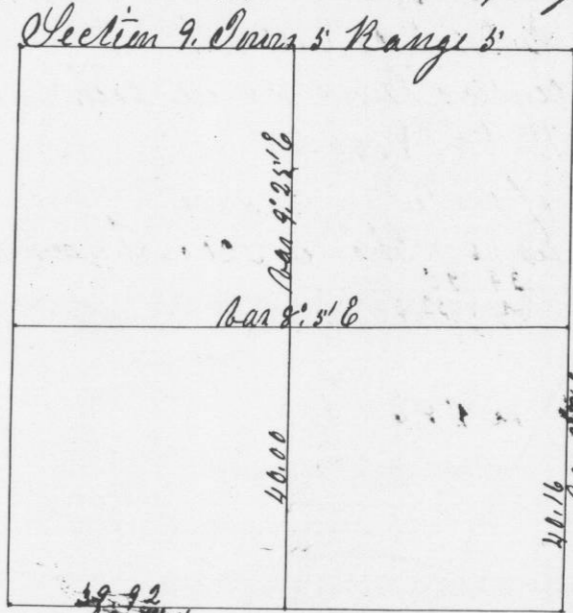 Section 9. Town 5 Range 5
Var 9° 25' E
Var 8° 5' E
40.00
40.16